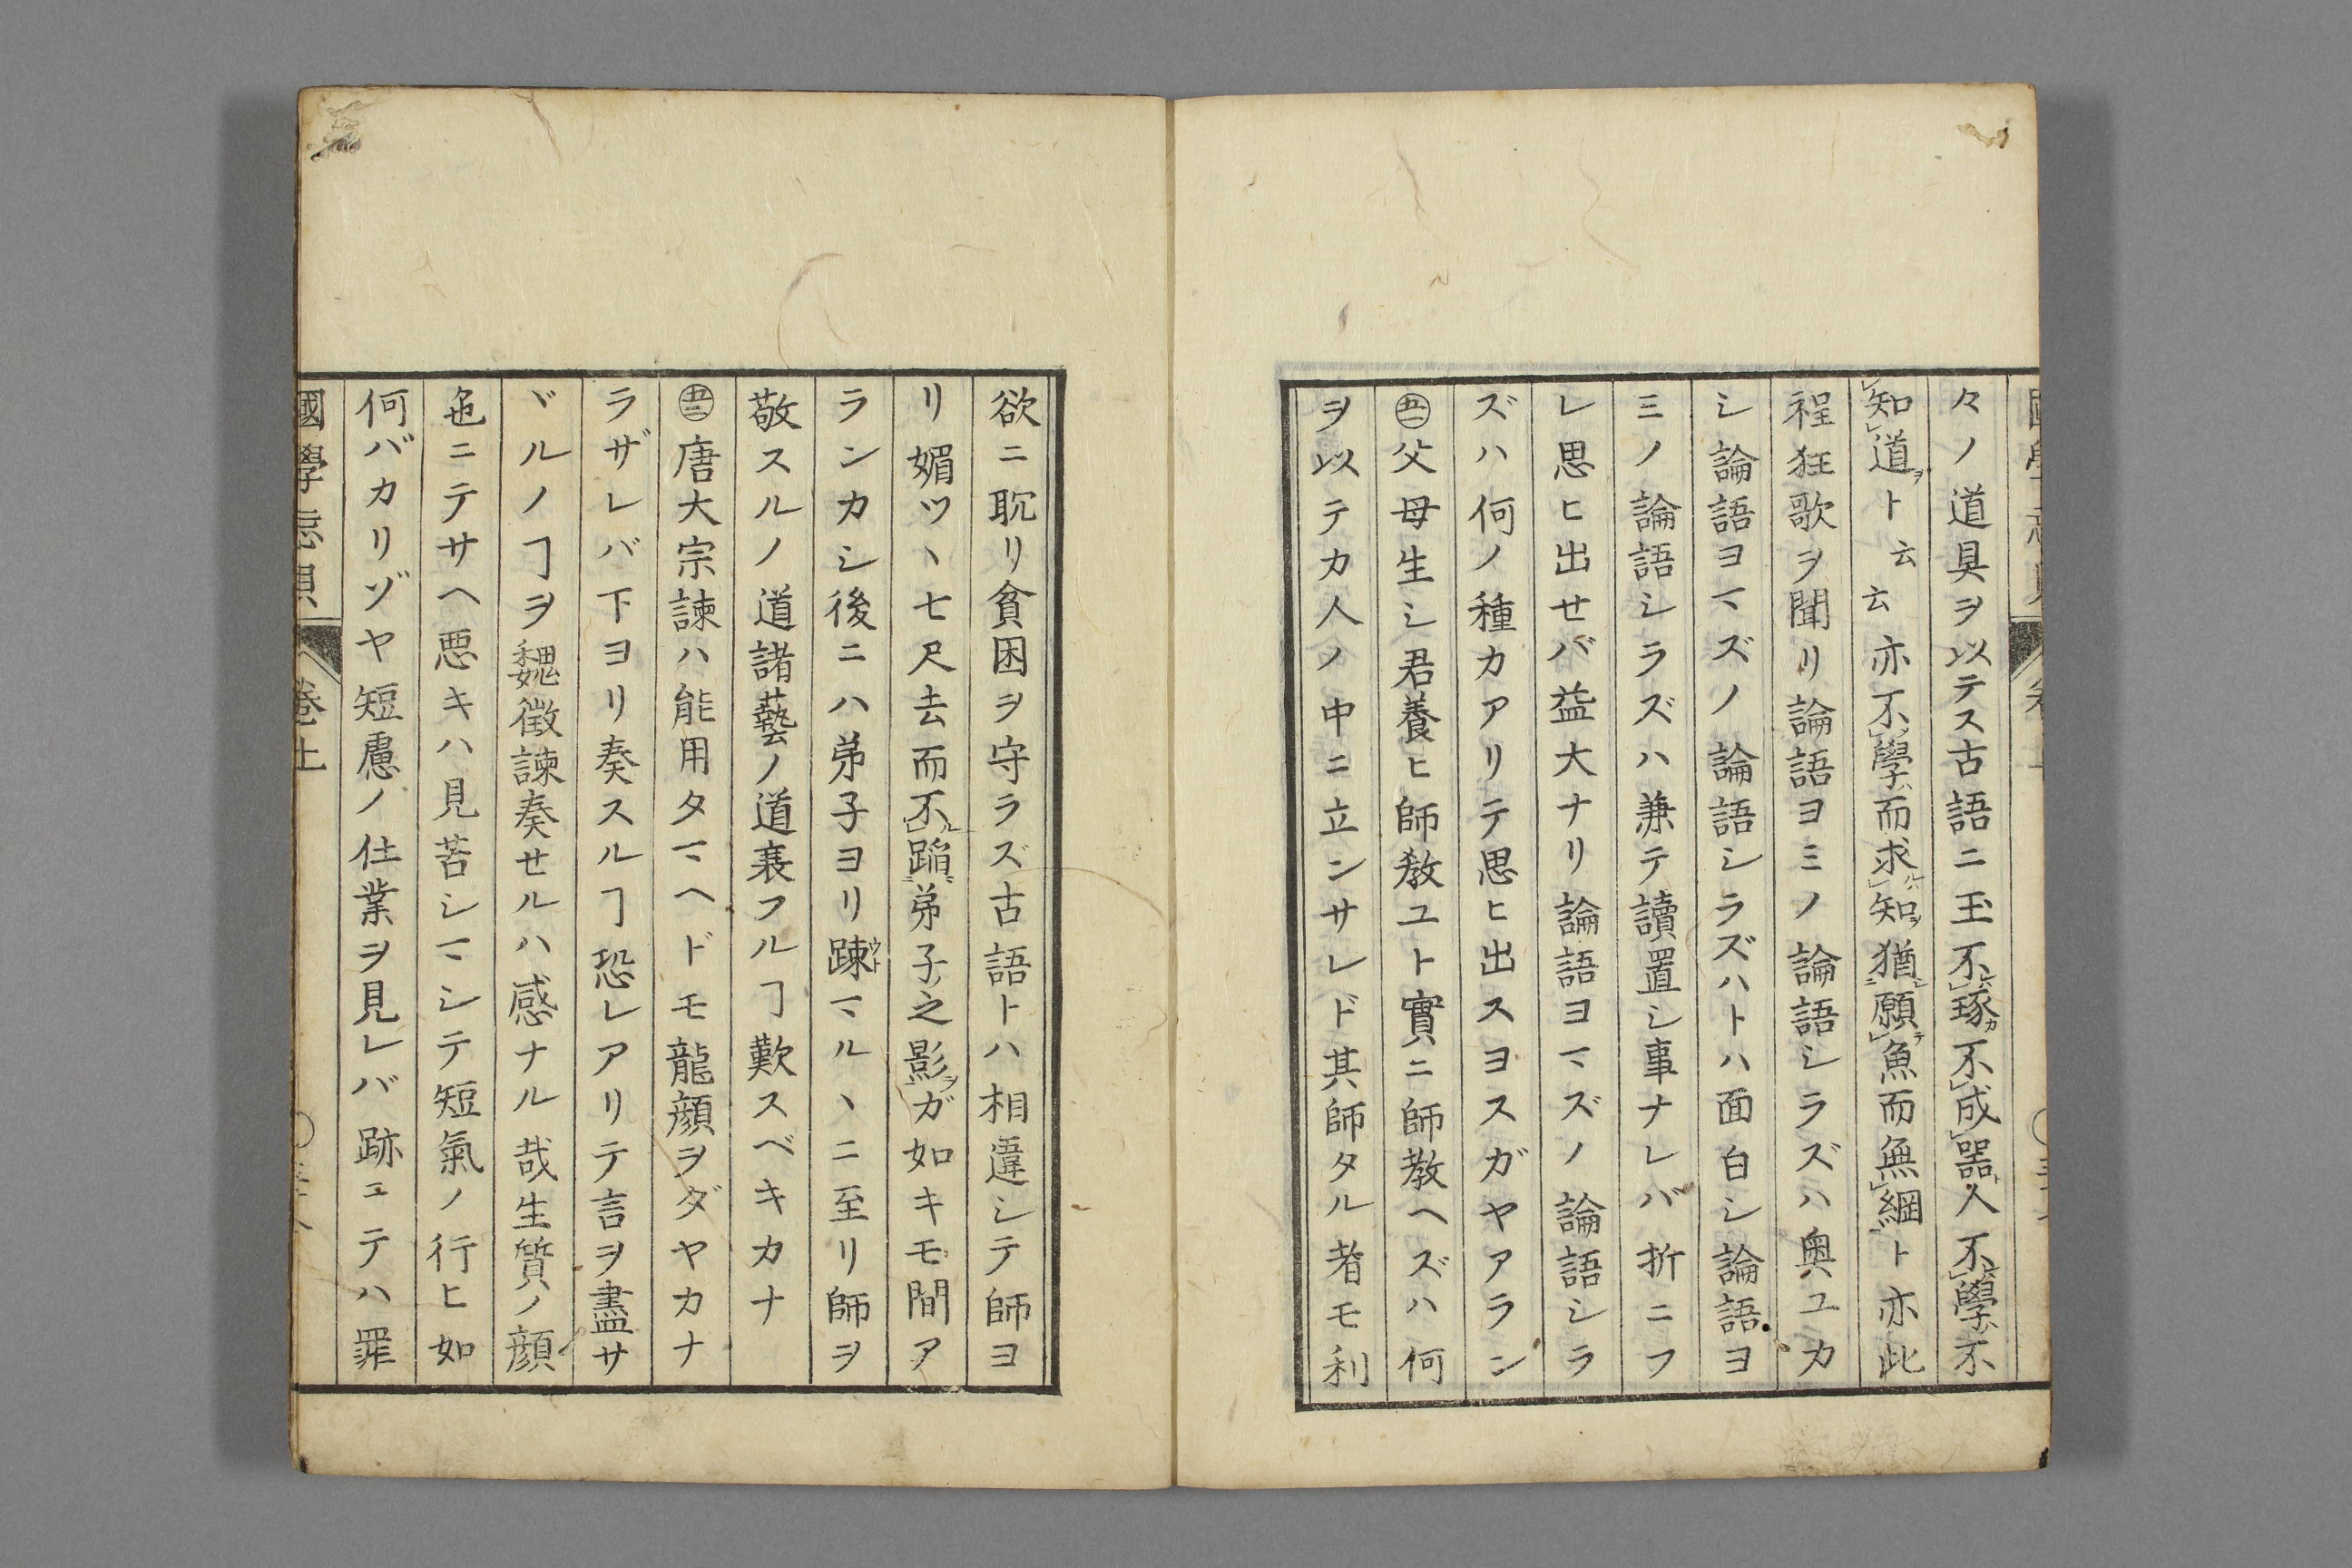 々ノ道具ヲ以テス古語ニ玉不琢不成器人不學不
知道ト云云亦不學而求知猶願魚而無網ト亦此
程狂歌ヲ聞リ論語ヨミノ論語シラズハ奥ユカ
シ論語ヨマズノ論語シラズハトハ面白シ論語ヨ
ミノ論語シラズハ兼テ讀置シ事ナレバ折ニフ
レ思ヒ出セバ益大ナリ論語ヨマズノ論語シラ
ズハ何ノ種カアリテ思ヒ出スヨスガヤアラン
㊄㊀父母生シ君養ヒ師教ユト實ニ師教ヘズハ何
ヲ以テカ人ノ中ニ立ンサレド其師タル者モ利
欲ニ耽リ貧困ヲ守ラズ古語トハ相違シテ師ヨ
リ媚ツヽ七尺去而不蹈弟子之影ガ如キモ間ア
ランカシ後ニハ弟子ヨリ踈マルヽニ至リ師ヲ
敬スルノ道諸藝ノ道衰フルヿ歎スベキカナ
㊄㊁唐大宗諫ハ能用タマヘドモ龍顔ヲダヤカナ
ラザレバ下ヨリ奏スルヿ恐レアリテ言ヲ盡サ
ヾルノヿヲ魏徴諫奏セルハ感ナル哉生質ノ顔
色ニテサヘ悪キハ見苦シマシテ短氣ノ行ヒ如
何バカリゾヤ短慮ノ仕業ヲ見レバ跡ヱテハ罪
國學忘貝
卷上